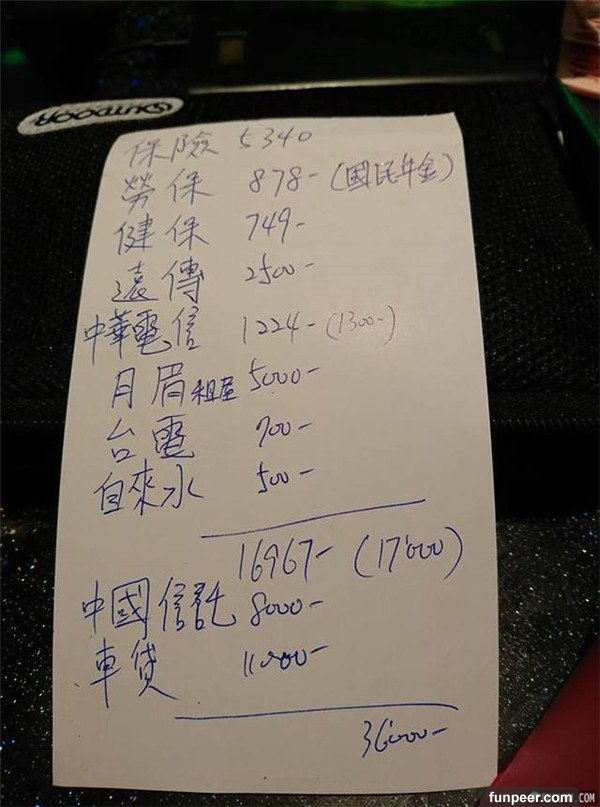 OUTDOOR
保險 5340
勞保 878-(國民年金)
健保 749-
遠傳 2500-
中華電信 1224-(1300-)
月眉租屋 5000-
台電 700-
自來水 500-
16967-(17'000)
中國信託 8000-
車貸 11000-
36'000-
funpeer.com
.COM